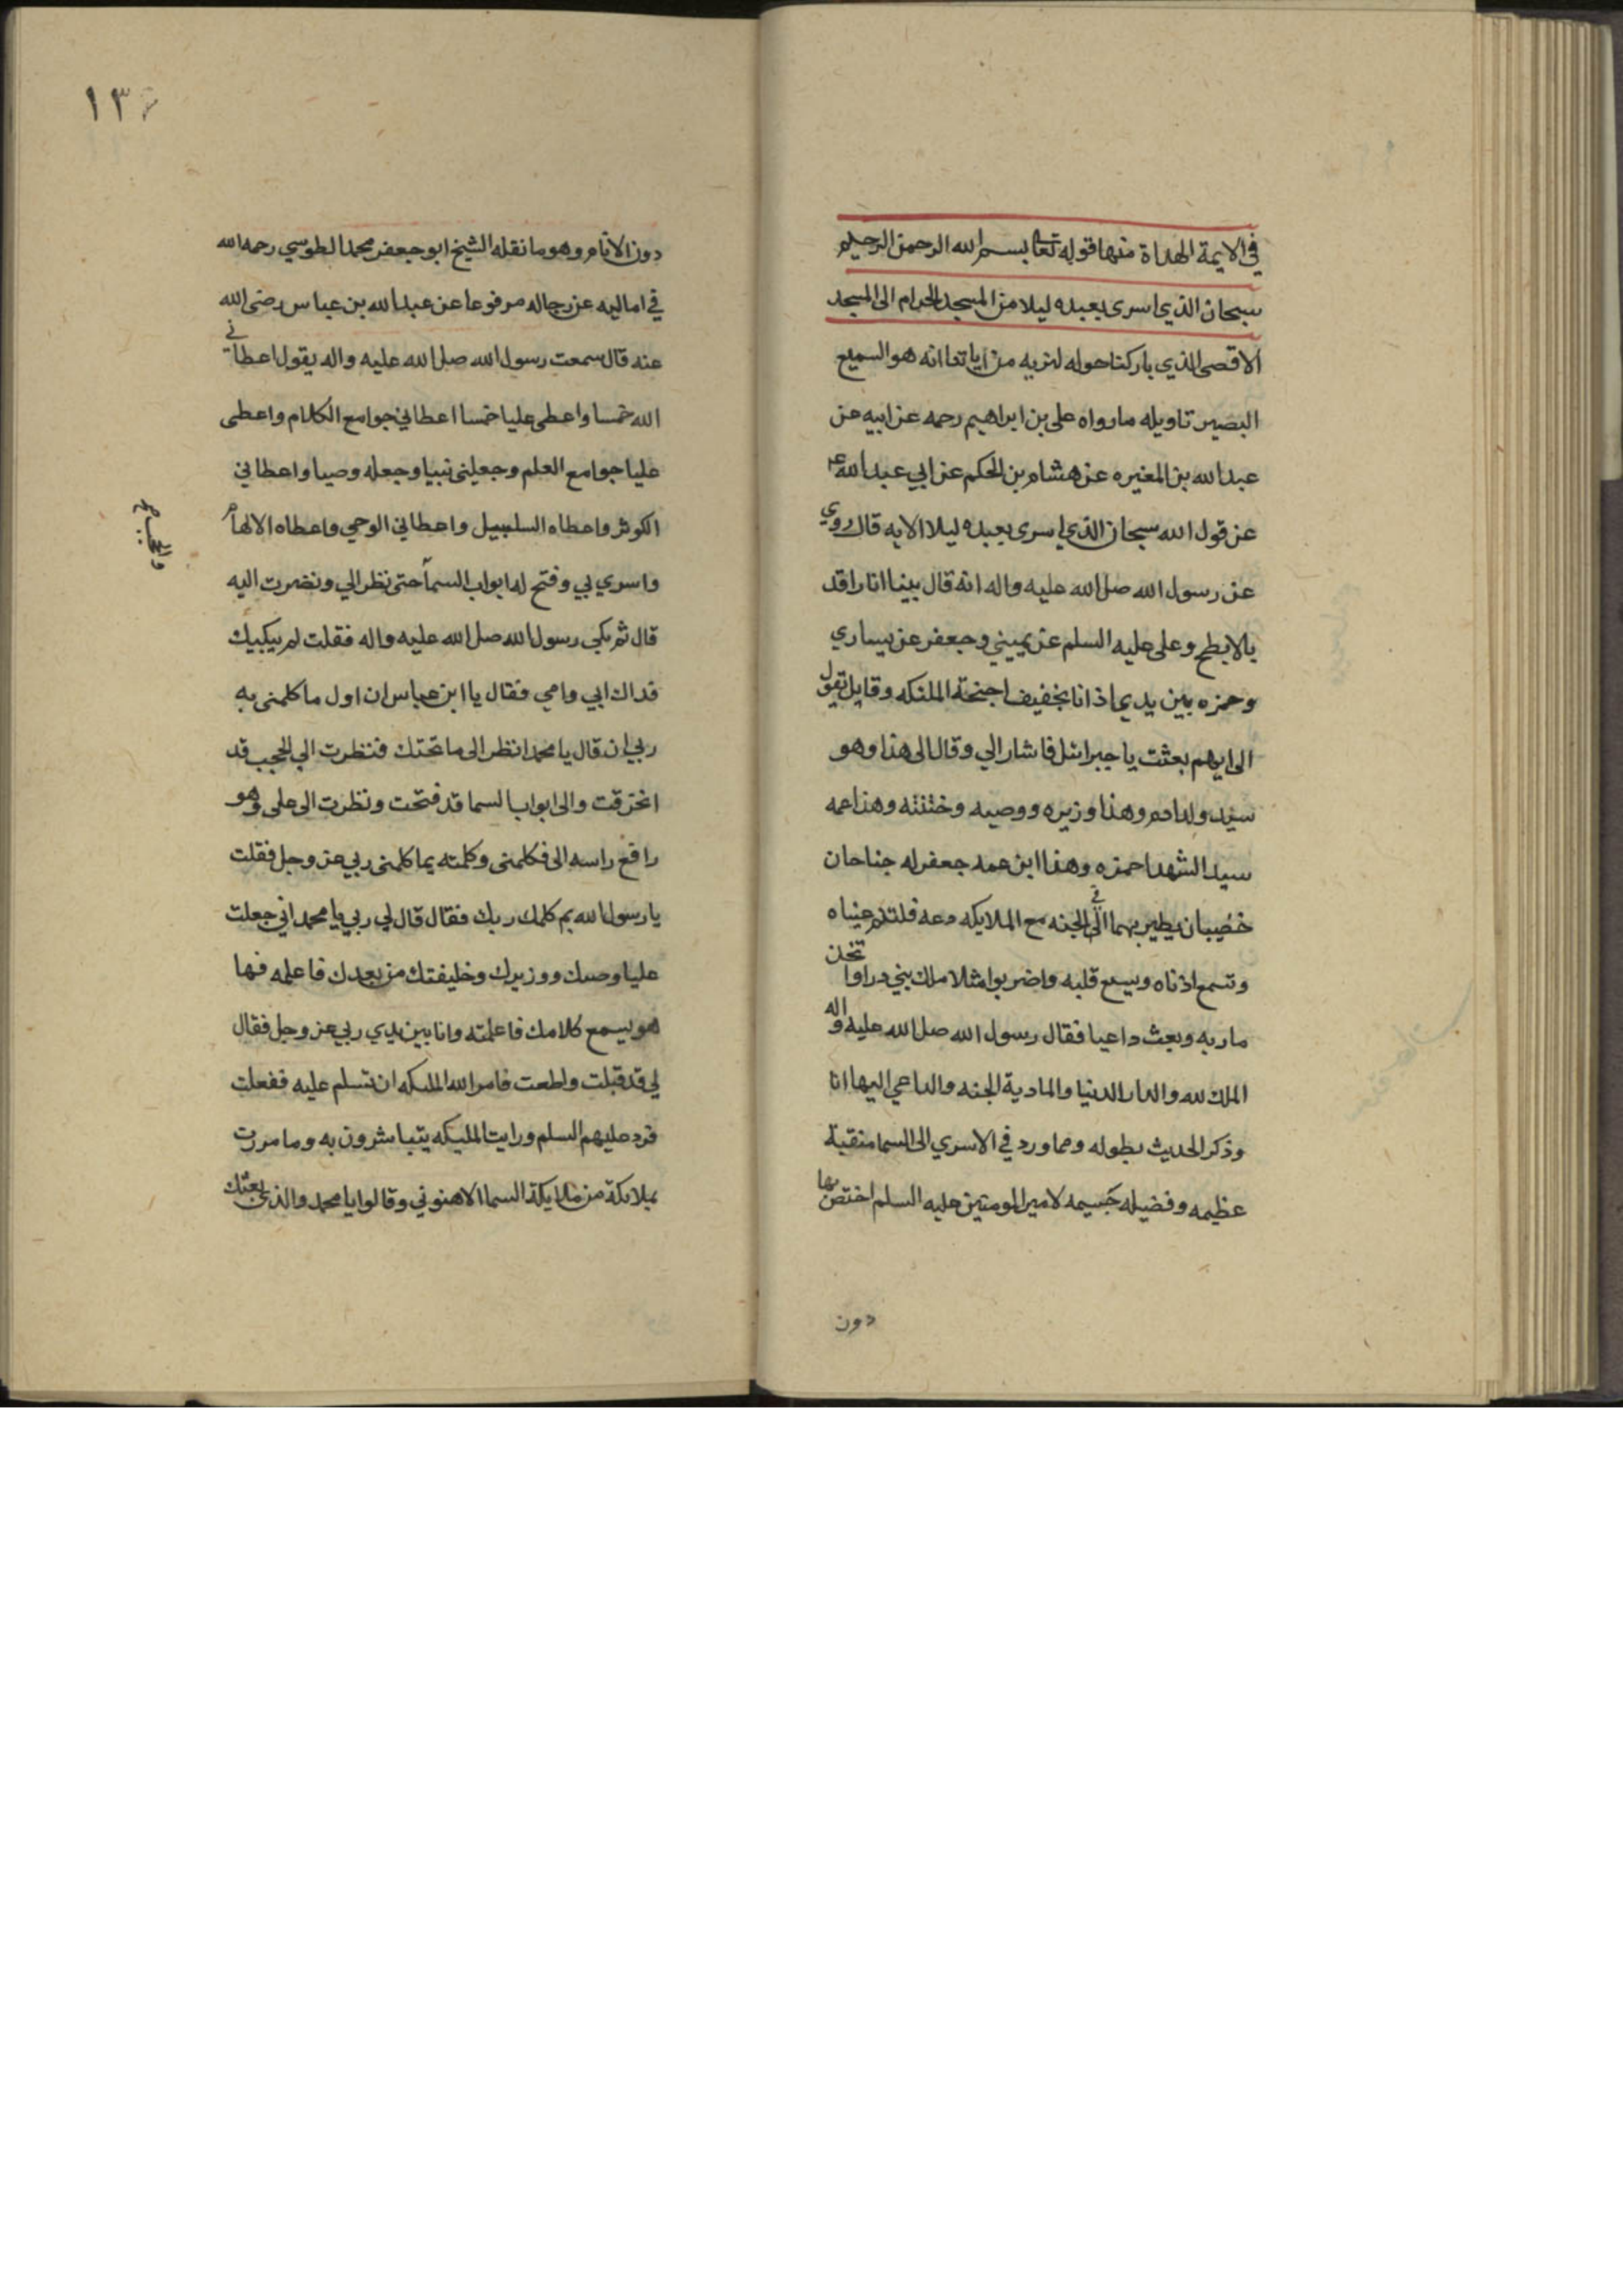 في الايمة الهداة منها قوله تعا بسم الله الرحمن الرحيم
سبحان الذي اسرى بعبده ليلا من المسجد الحرام الى المسجد
الاقصى الذي باركنا حوله لنريه من اياتنا انه هو السميع
البصير تاويله ما رواه على بن ابراهيم رحمه عن ابيه عن
عبد الله بن المغيره عن هشام بن الحكم عن ابي عبد الله ع
عن قول الله سبحان الذي اسرى بعبده ليلا الايه قال روي
عن رسول الله صلى الله عليه واله انه قال بينا انا راقد
بالابطح وعلى عليه السلم عن يميني وجعفر عن يساري
وحمزه بين يدي اذ انا بخفيف اجنحة الملئكه وقايل يقول
الى ايهم بعثت يا جبرائل فاشار الي وقال الى هذا وهو
سيد ولد ادم وهذا وزيره ووصيه وختنته وهذا عمه
سيد الشهدا حمزه وهذا ابن عمه جعفر له جناحان
خضيبان يطير بهما في الجنه مع الملايكه دعه فلتنم عيناه
وتسمع اذناه ويسع قلبه واضربوا مثلا ملك بنى دارا واتخذ
ماربه وبعث داعيا فقال رسول الله صلى الله عليه واله
الملك لله والدار الدنيا والمادبة الجنه والداعي اليها انا
وذكر الحديث بطوله ومما ورد في الاسري الى السما منقبة
عظيمه وفضيله جسيمه لامير المومنين عليه السلم اختص بها
دون
١٣
دون الانام وهو ما نقله الشيخ ابو جعفر محمد الطوسي رحمه الله
في اماليه عن رجاله مرفوعا عن عبد الله بن عباس رضى الله
عنه قال سمعت رسول الله صلى الله عليه واله يقول اعطاني
الله خمسا واعطى عليا خمسا اعطاني جوامع الكلام واعطى
عليا جوامع العلم وجعلنى نبيا وجعله وصيا واعطاني
الكوثر واعطاه السلسبيل واعطاني الوحي واعطاه الالهام
واسري بي وفتح له ابواب السما حتى نظر الي ونضرت اليه
قال ثم بكى رسول الله صلى الله عليه واله فقلت لم يبكيك
فداك ابي وامي فقال يا ابن عباس ان اول ما كلمنى به
ربي ان قال يا محمد انظر الى ما تحتك فنظرت الي الحجب قد
انخرقت والى ابواب السما قد فتحت ونظرت الى على وهو
رافع راسه الى فكلمنى وكلمته بما كلمنى ربي عز وجل فقلت
يا رسول الله بم كلمك ربك فقال قال لي ربي يا محمد اني جعلت
عليا وصيك ووزيرك وخليفتك من بعدك فاعلمه فها
هو يسمع كلامك فاعلمته وانا بين يدي ربي عز وجل فقال
لي قد قبلت واطعت فامر الله الملئكه ان تسلم عليه ففعلت
فرد عليهم السلم ورايت المليكه يتباشرون به وما مررت
بملائكة من ملايكة السما الا هنوني وقالوا يا محمد والذي بعثك